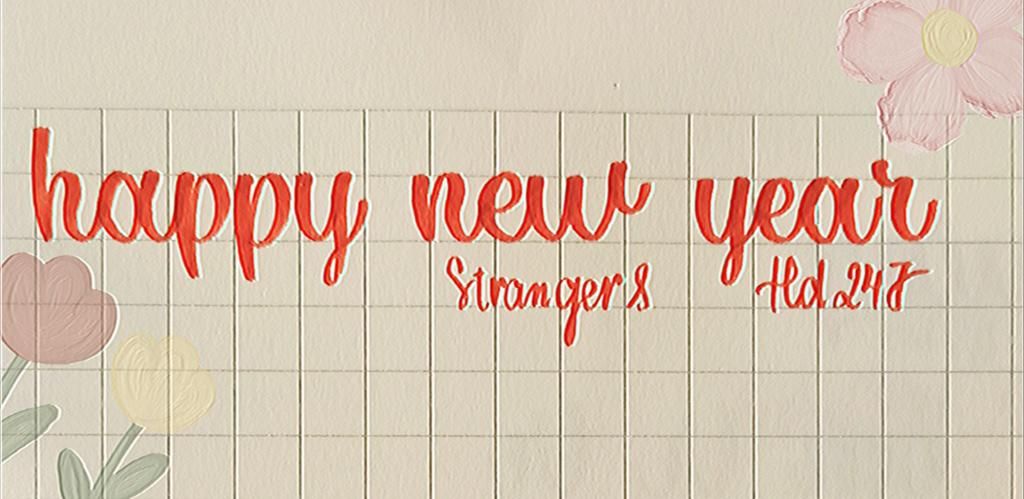 happy new year
Strangers Hd247